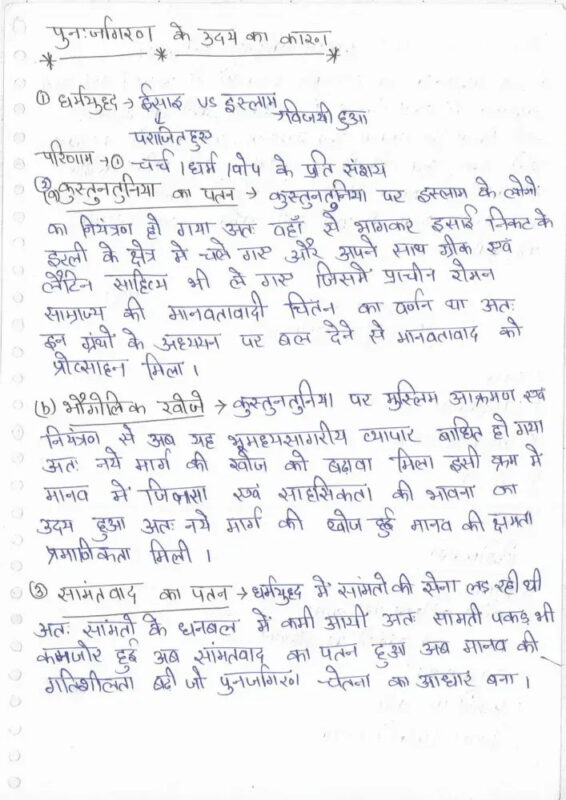 पुनःर्जागरण के उदय का कारण
① धर्मयुध्द → ईसाई vs इस्लाम
↓ → विजयी हुआ
पराजित हुए
परिणाम → ① चर्च । धर्म । पोप के प्रति संशय
② (a) कुस्तुनतुनिया का पतन → कुस्तुनतुनिया पर इस्लाम के लोगो
का नियंत्रण हो गया अतः वहाँ से भागकर इसाई निकट के
इटली के क्षेत्र मे चले गए और अपने साथ ग्रीक एवं
लैटिन साहित्य भी ले गए जिसमें प्राचीन रोमन
साम्राज्य की मानवतावादी चिंतन का वर्णन था अतः
इन ग्रंथो के अध्ययन पर बल देने से मानवतावाद को
प्रोत्साहन मिला ।
(b) भौगोलिक खोजे → कुस्तुनतुनिया पर मुस्लिम आक्रमण एवं
नियंत्रण से अब यह भूमध्यसागरीय व्यापार बाधित हो गया
अतः नये मार्ग की खोज को बढ़ावा मिला इसी क्रम मे
मानव में जिज्ञासा एवं साहसिकता की भावना का
उदय हुआ अतः नये मार्ग की खोज हुई मानव की क्षमता
प्रमाणिकता मिली ।
③ सामंतवाद का पतन → धर्मयुध्द में सांमतो की सेना लड़ रही थी
अतः सांमतो के धनबल में कमी आयी अतः सामती पकड़ भी
कमजोर हुई अब सांमतवाद का पतन हुआ अब मानव की
गतिशीलता बढ़ी जो पुनर्जागरण चेतना का आधार बना ।